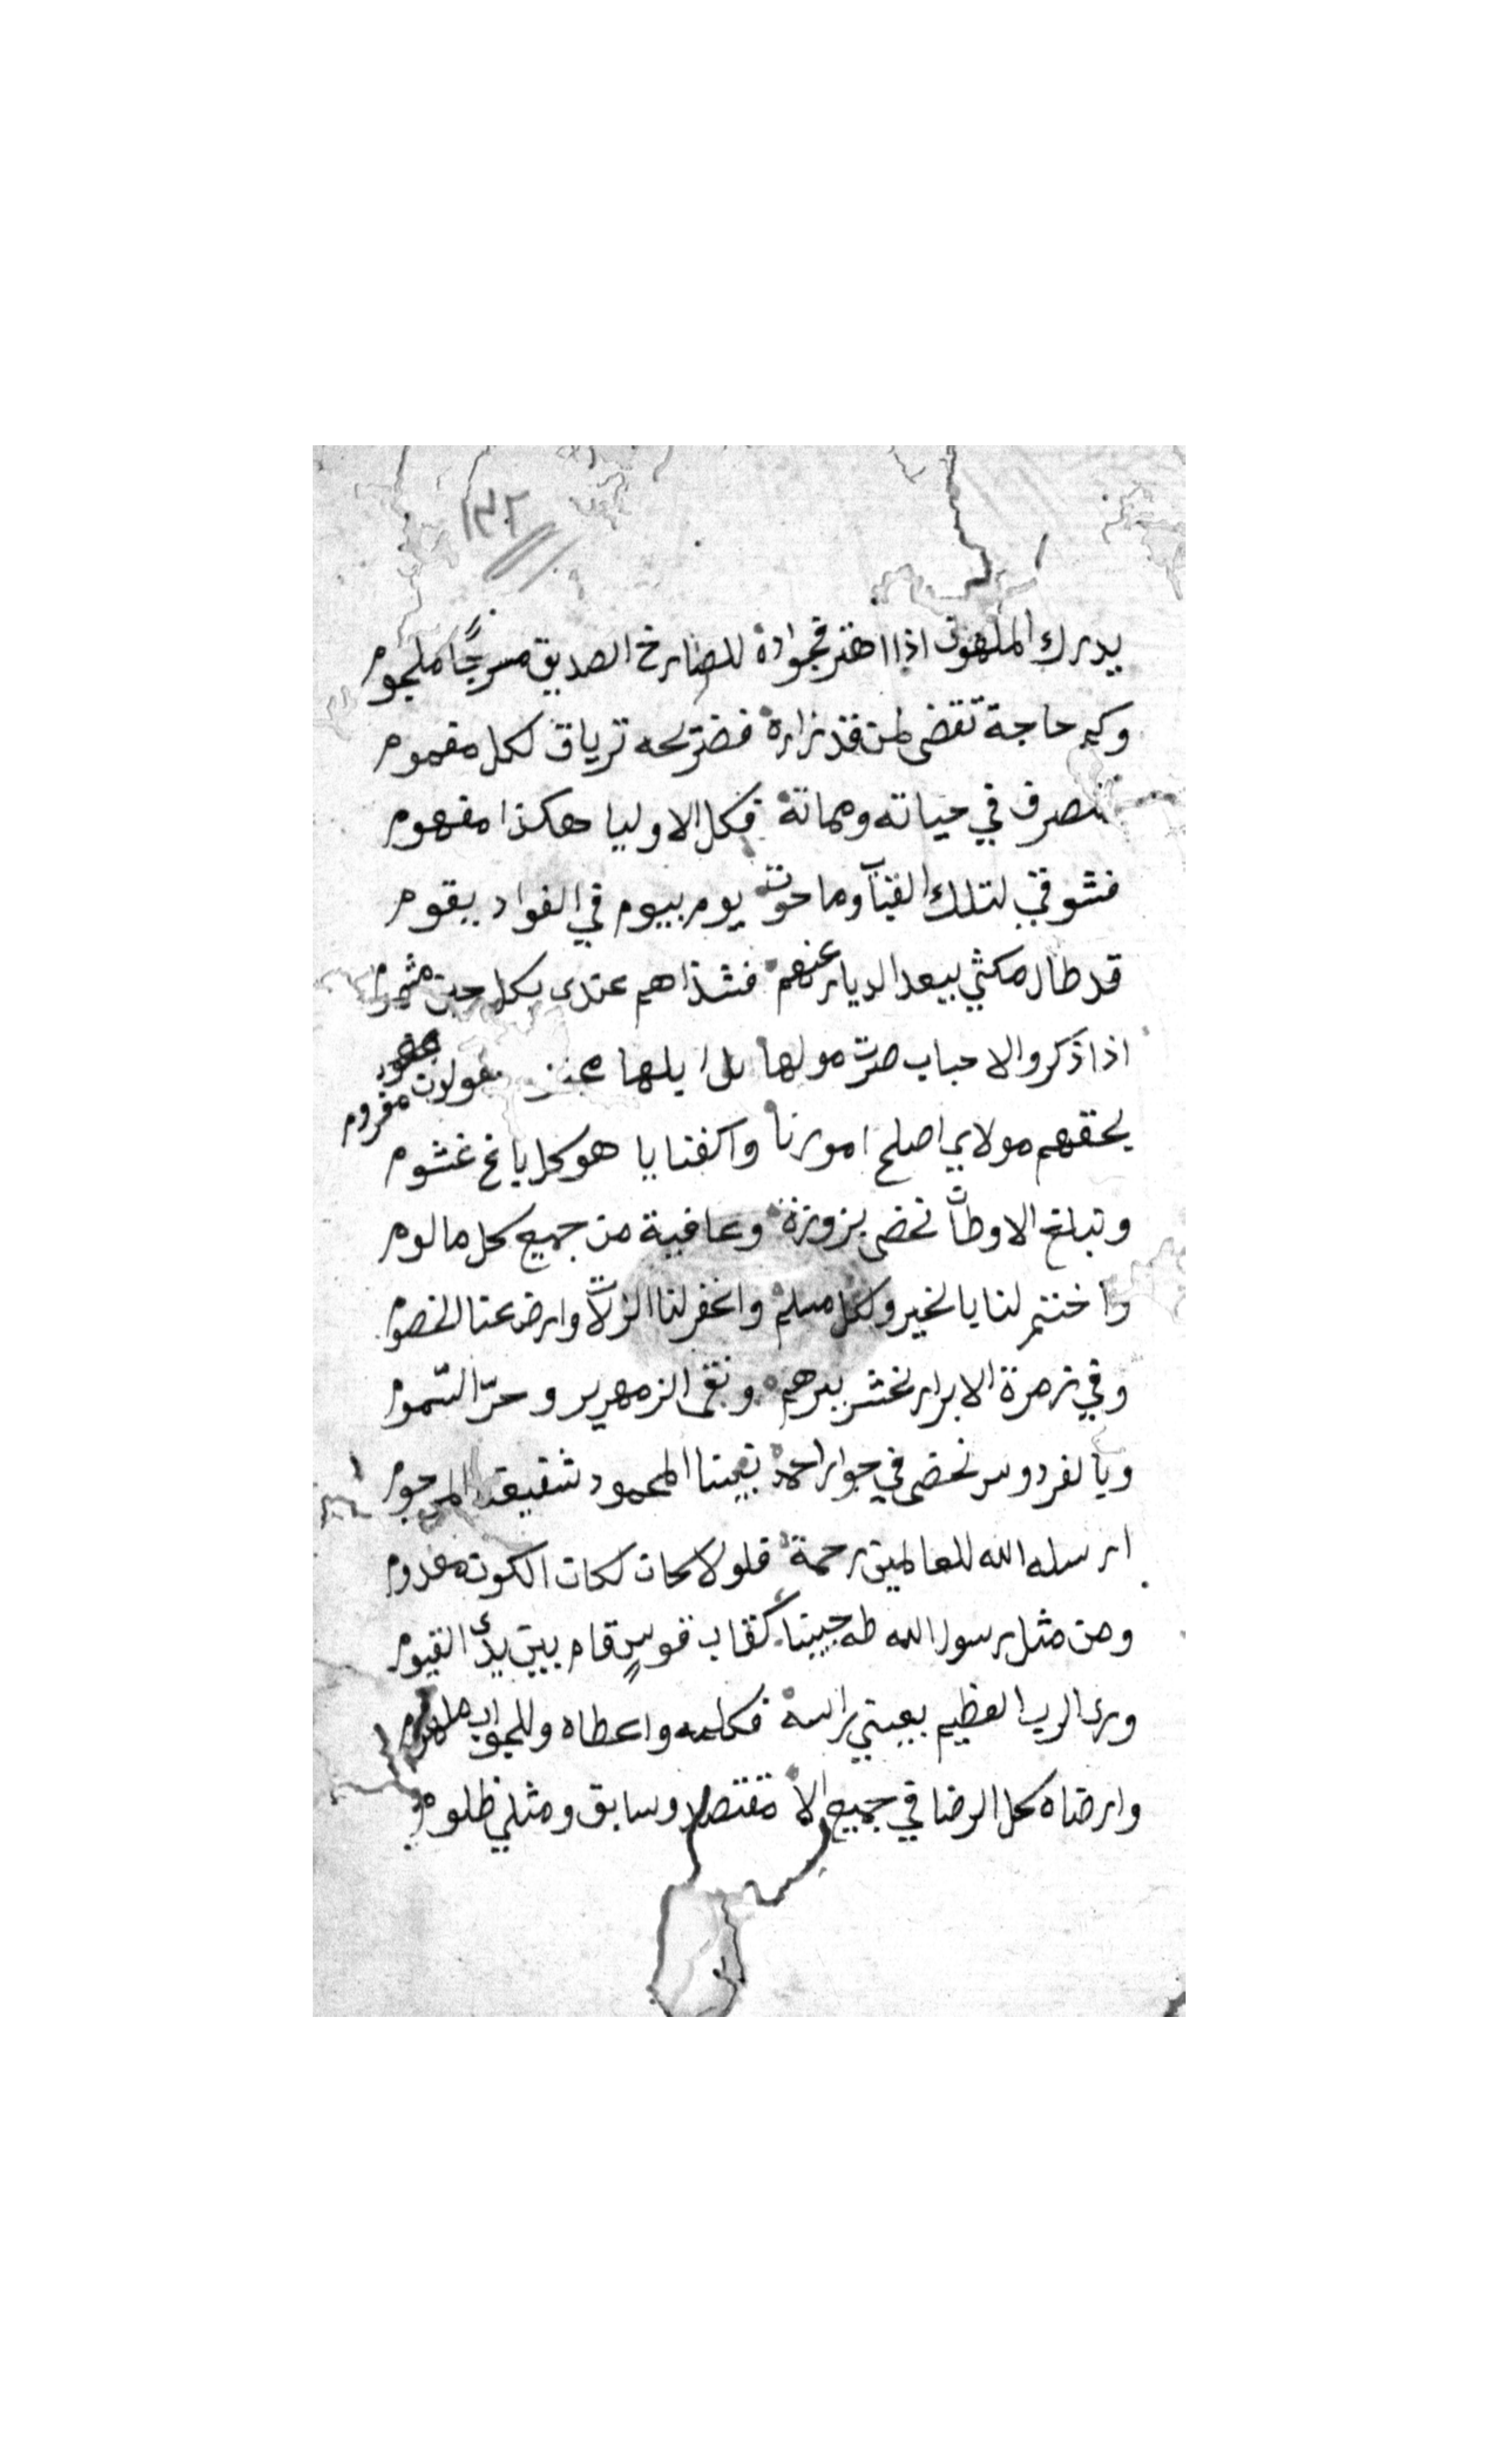 ١٣٢
يدرك الملهوف اذا اهتز فجواده للصارخ الصديق مسرجًا ملجوم
وكم حاجة تقضى لمن قد زاره فضريحه ترياق لكل مغموم
تصرف في حياته ومماته فكل الاوليا هكذا مفهوم
فشوقي لتلك القبآب وما حوت يوم بيوم في الفواد يقوم
قد طال مكثي ببعد الديار عنهم فشذاهم عندى بكل حين مشموم
اذا ذكروا الاحباب صرت مولها
بحقهم مولاي اصلح امورنا واكفنا يا هو كل باغ غشوم
وتبلغ الاوطان نحضى بزورة وعافية من جميع كل مالوم
واختم لنا بالخير ولكل مسلم واغفر لنا الزلات وارض عنا الخصوم
وفي زمرة الابرار نحشر ببرهم ونقى الزمهرير وحرّ السّموم
وبالفردوس نحضى في جوار احمد نبينا المحمود شفيعنا المرحوم
ارسله الله للعالمين رحمة فلولاه كان لكان الكون معدوم
ومن مثل رسول الله طه حبيبنا كقاب قوسٍ قام بين يدى القيوم
ورى الرب العظيم بعيني راسه فكلمه واعطاه وللجواب ملهوم
وارضاه كل الرضا في جميع الا مقتصد وسابق ومثلي ظلوم